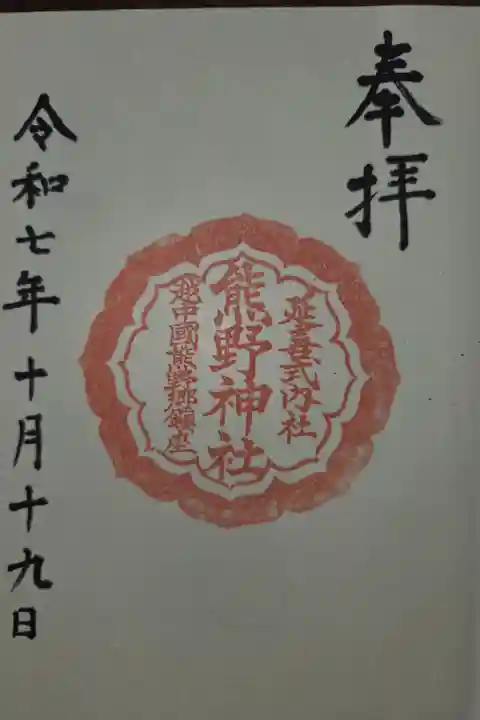 奉拝
延喜式内社
熊野神社
越中國熊野郷鎮座
令和七年十月十九日